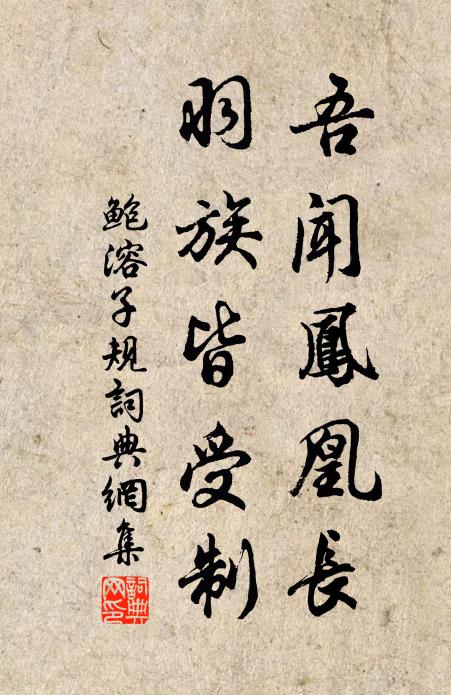 吾聞鳳凰長
羽族皆受制
鮑溶子規詞典網集
詞典網印